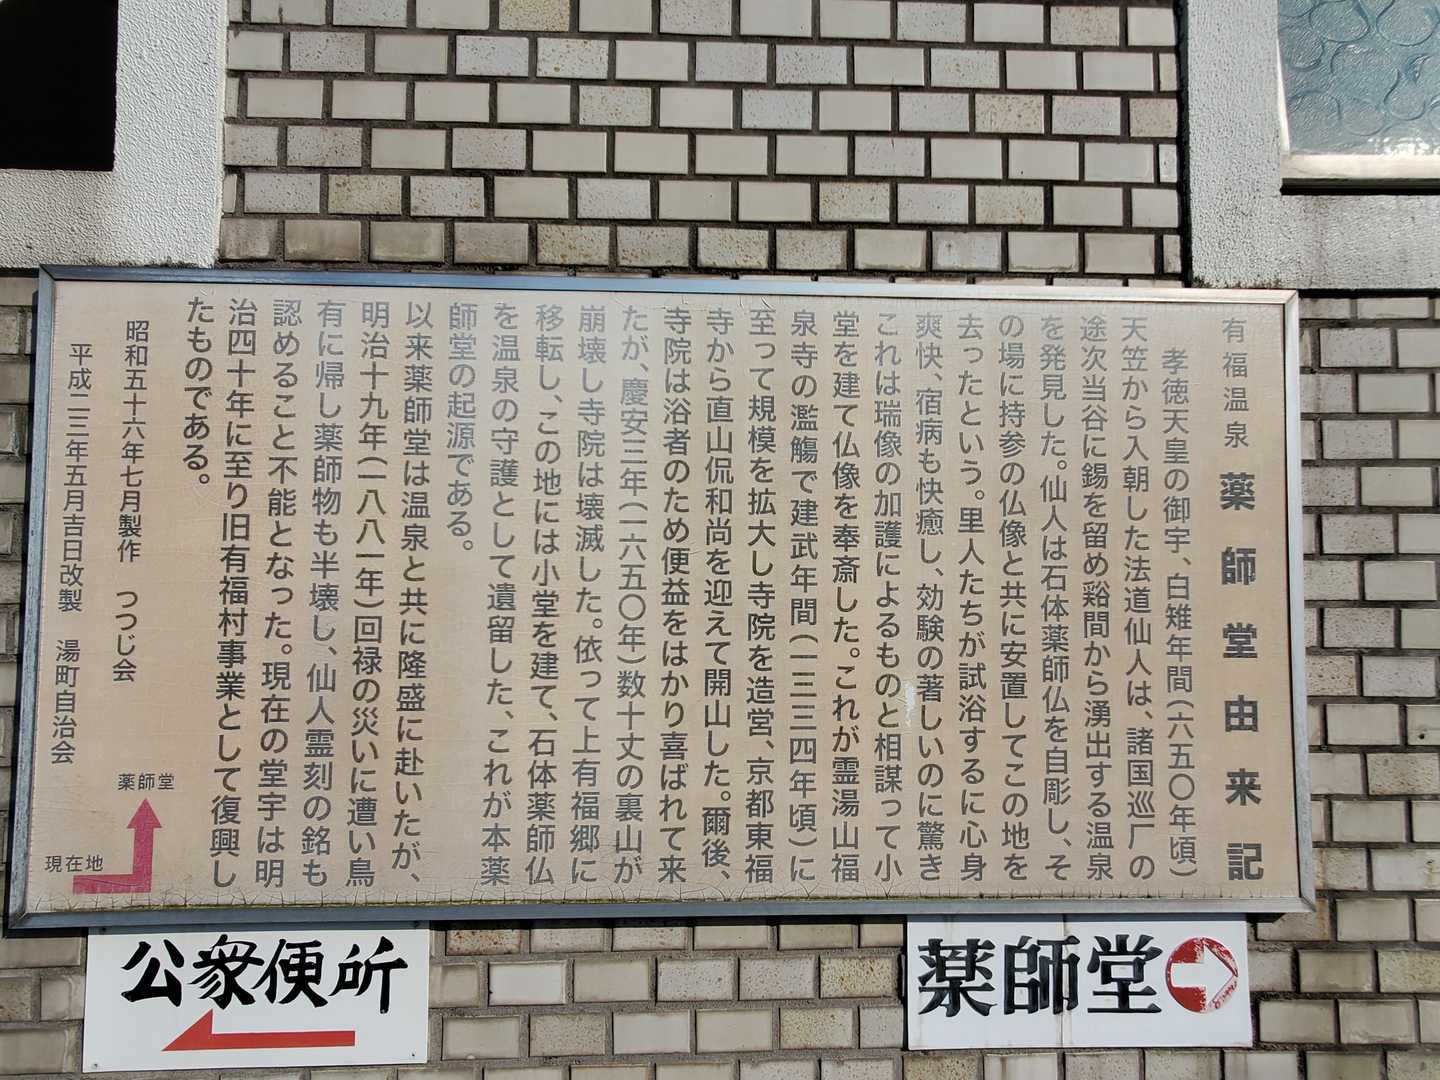 有福温泉 薬師堂由来記
孝徳天皇の御宇、白雉年間(六五〇年頃)
天竺から入朝した法道仙人は、諸国巡厂の
途次当谷に錫を留め谿間から湧出する温泉
を発見した。仙人は石体薬師仏を自彫し、そ
の場に持参の仏像と共に安置してこの地を
去ったという。里人たちが試浴するに心身
爽快、宿病も快癒し、効験の著しいのに驚き
これは瑞像の加護によるものと相謀って小
堂を建て仏像を奉斎した。これが霊湯山福
泉寺の濫觴で建武年間(一三三四年頃)に
至って規模を拡大し寺院を造営、京都東福
寺から直山侃和尚を迎えて開山した。爾後、
寺院は浴者のため便益をはかり喜ばれて来
たが、慶安三年(一六五〇年)数十丈の裏山が
崩壊し寺院は壊滅した。依って上有福郷に
移転し、この地には小堂を建て、石体薬師仏
を温泉の守護として遺留した、これが本薬
師堂の起源である。
以来薬師堂は温泉と共に隆盛に赴いたが、
明治十九年(一八八一年)回禄の災いに遭い烏
有に帰し薬師物も半壊し、仙人霊刻の銘も
認めること不能となった。現在の堂宇は明
治四十年に至り旧有福村事業として復興し
たものである。
昭和五十六年七月製作 つつじ会
平成二三年五月吉日改製 湯町自治会
薬師堂
現在地
公衆便所
薬師堂